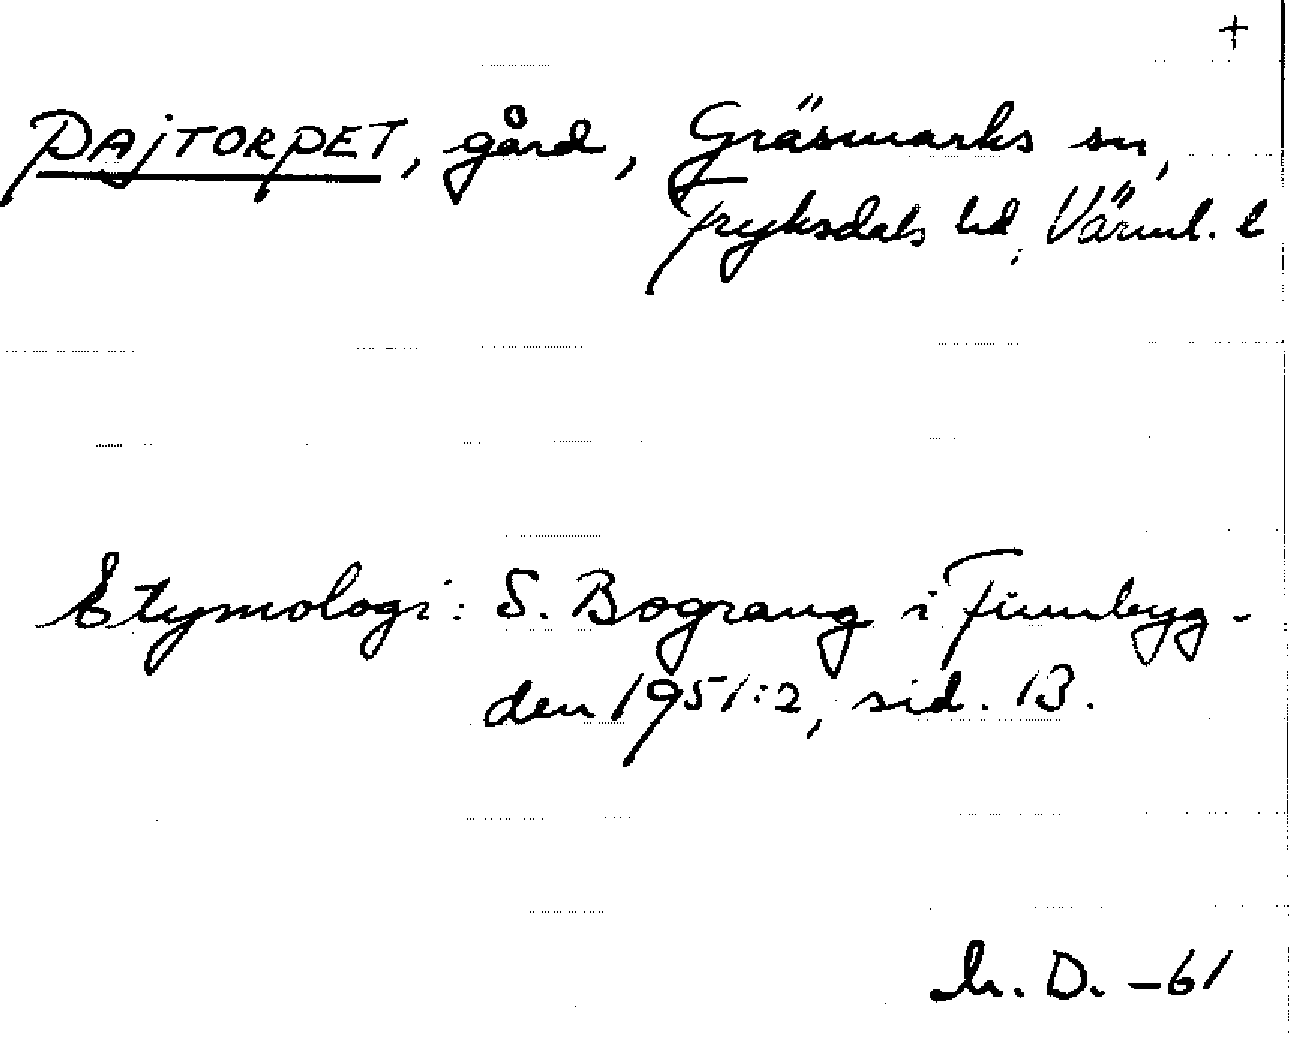 +
PAJTORPET, gård, Gräsmarks sn,
Fryksdals hd, Värml. l
Etymologi: S. Bograng i Finnbyg-
den 1951:2, sid. 13.
M. D. -61